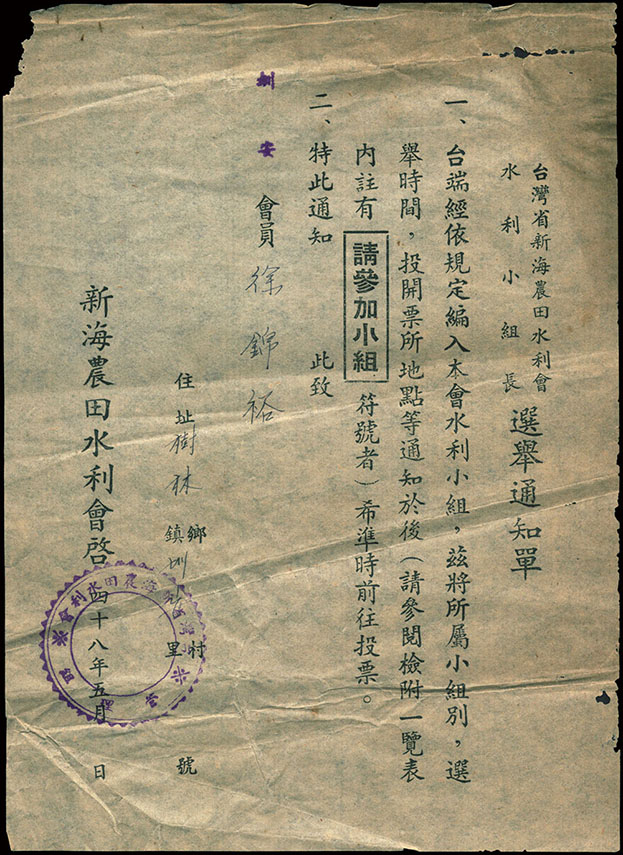 台灣省新海農田水利會
水利小組長
選舉通知單
一、台端經依規定編入本會水利小組，茲將所屬小組別，選
舉時間，投開票所地點等通知於後（請參閱檢附一覽表
內註有 請參加小組 符號者）希準時前往投票。
二、特此通知 此致
圳安 會員 徐錦裕
住址 樹林 鄉鎮 圳安 村里 號
新海農田水利會啓
四十八年五月 日